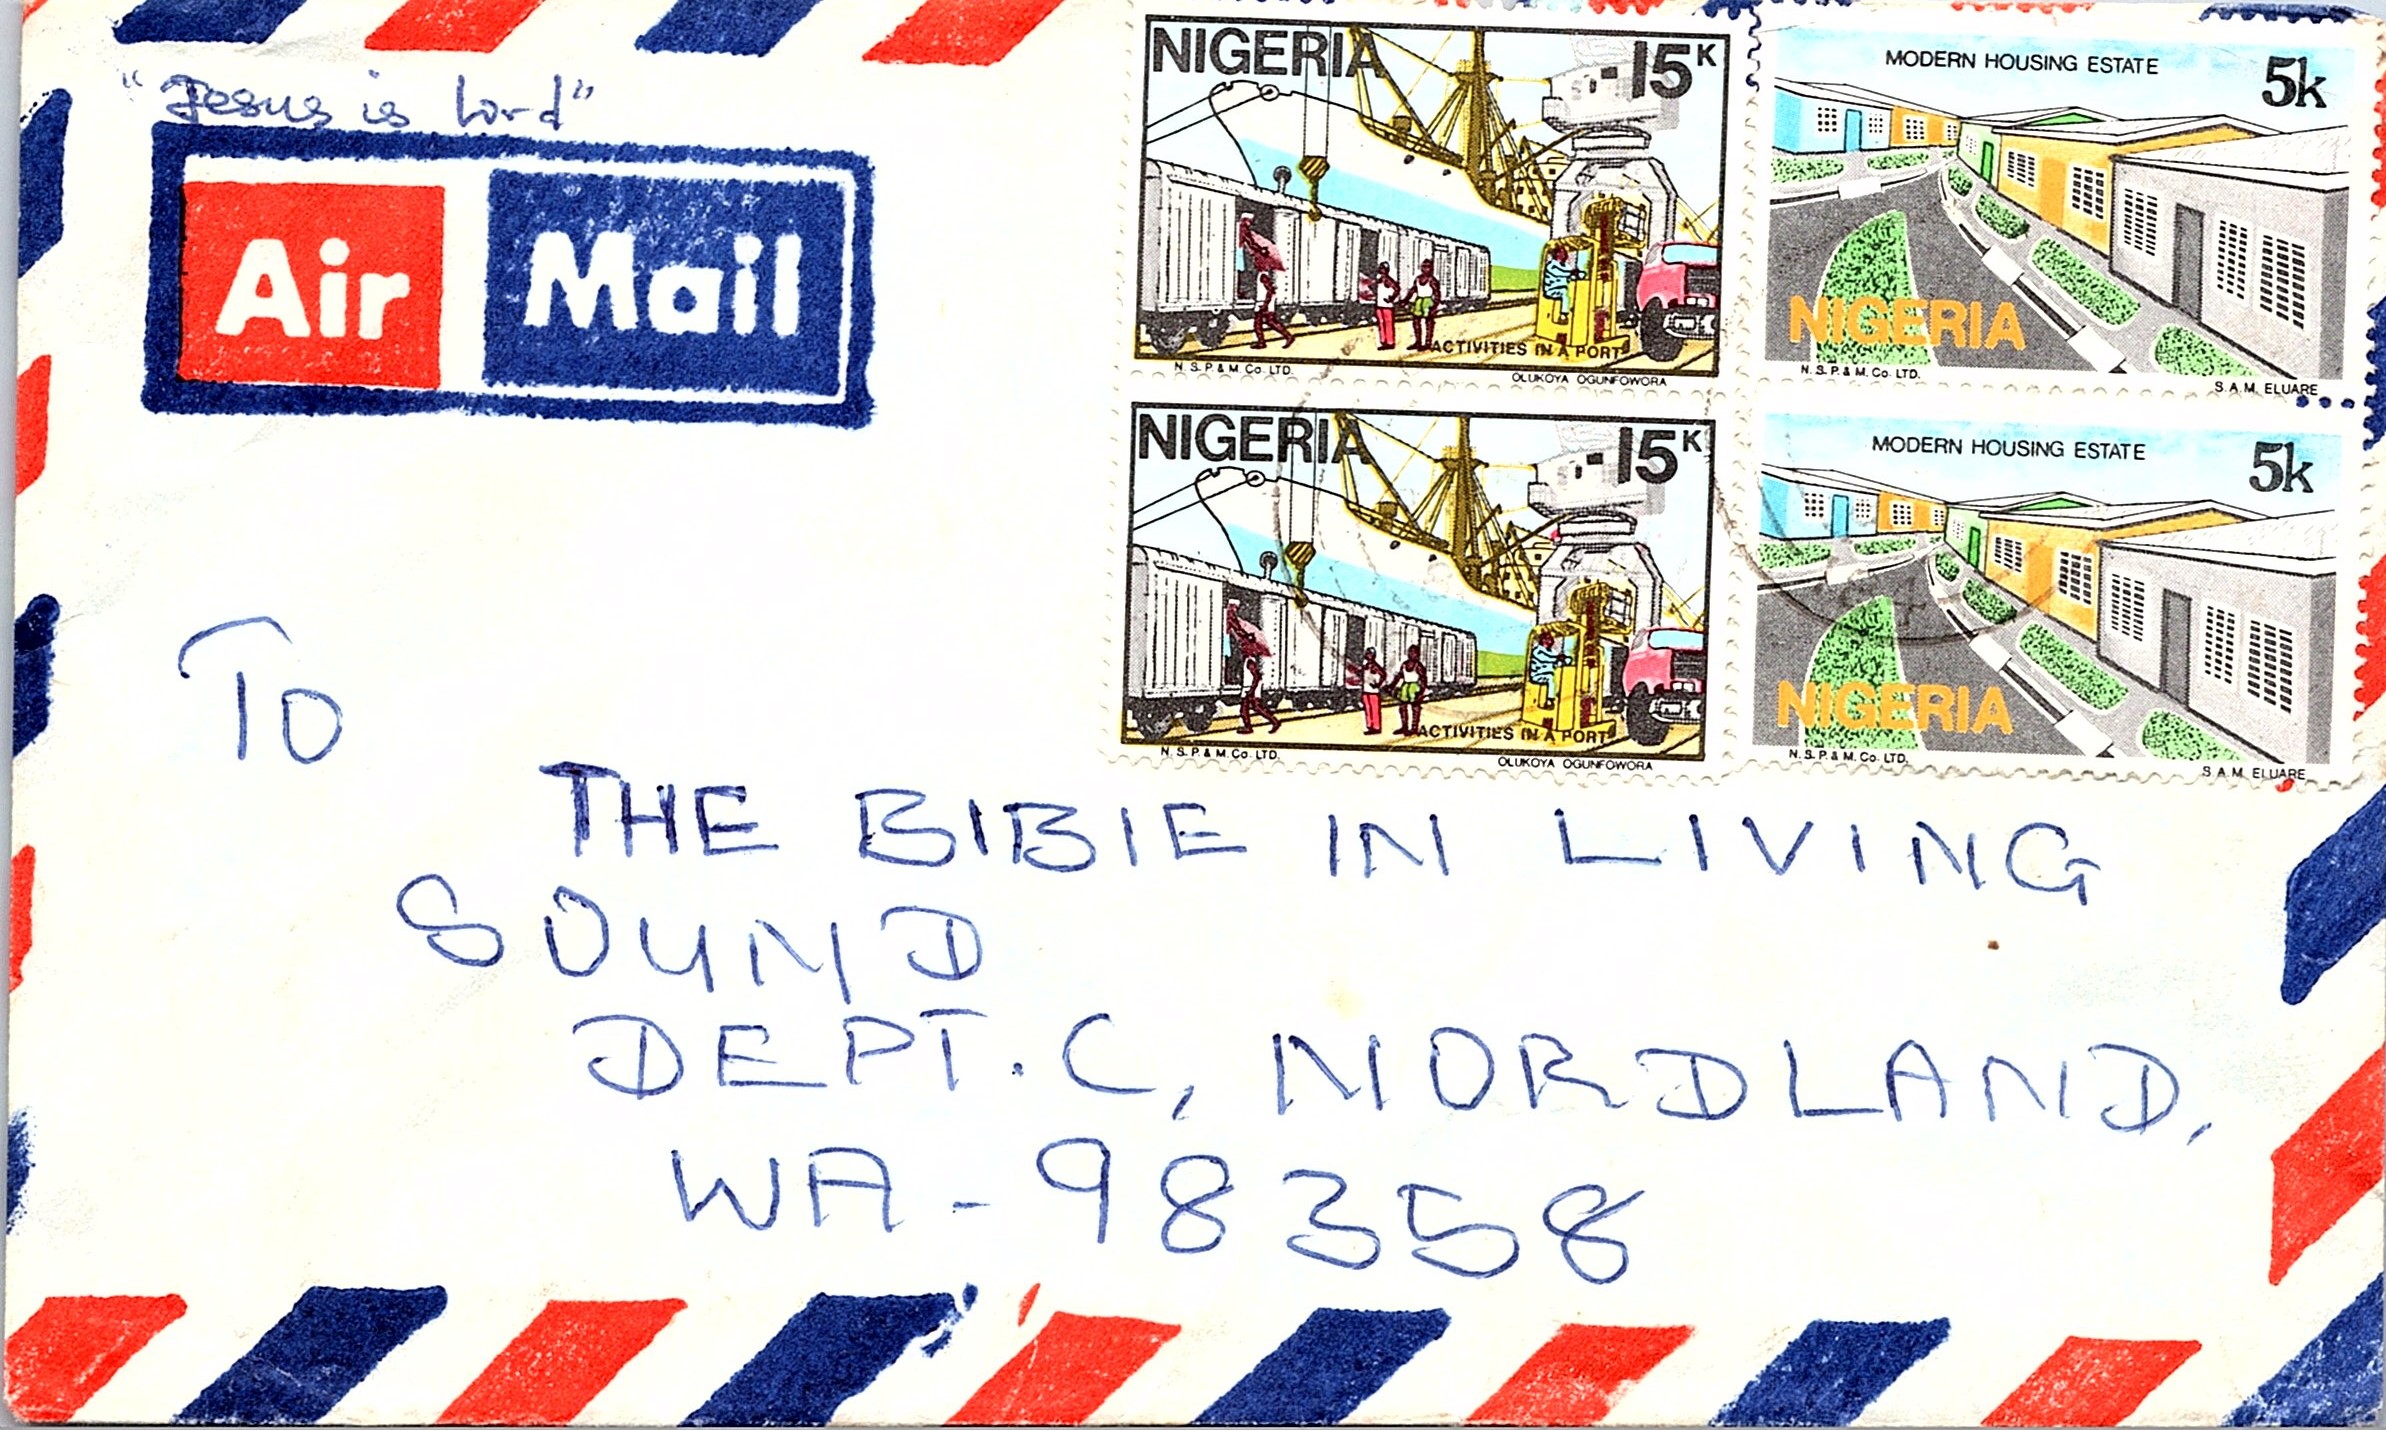 "Jesus is Lord"
Air Mail
NIGERIA 15K
ACTIVITIES IN A PORT
N.S.P.& M.Co. LTD. OLUKOYA OGUNFOWORA
MODERN HOUSING ESTATE 5k
NIGERIA
N.S.P.& M.Co. LTD. S.A.M. ELUARE
NIGERIA 15K
ACTIVITIES IN A PORT
N.S.P.& M.Co. LTD. OLUKOYA OGUNFOWORA
MODERN HOUSING ESTATE 5k
NIGERIA
N.S.P.& M.Co. LTD. S.A.M. ELUARE
TO
THE BIBIE IN LIVING
SOUND
DEPT. C, NORDLAND,
WA - 98358